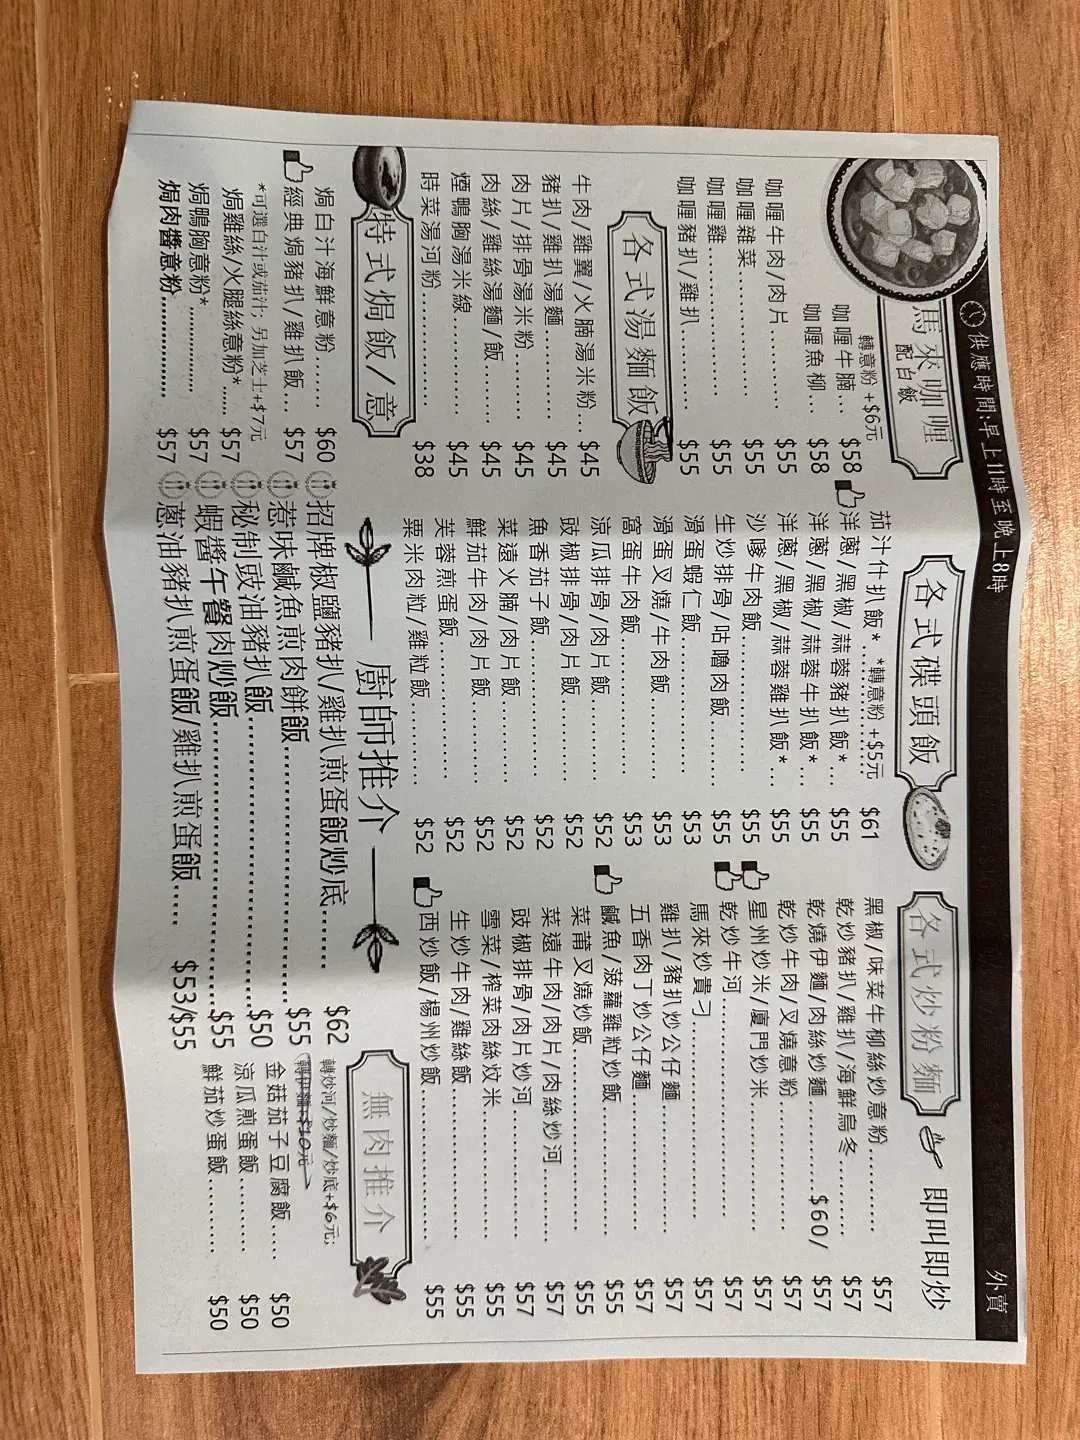 供應時間:早上11時至晚上8時
外賣
馬來咖喱
配白飯
轉意粉 +$6元
咖喱牛腩... $58
咖喱魚柳... $58
咖喱牛肉/肉片...... $55
咖喱雜菜............ $55
咖喱雞............ $55
咖喱豬扒/雞扒...... $55
各式湯麵飯
牛肉/雞翼/火腩湯米粉... $45
豬扒/雞扒湯麵......... $45
肉片/排骨湯米粉...... $45
肉絲/雞絲湯麵/飯...... $45
煙鴨胸湯米線......... $45
時菜湯河粉............ $38
特式焗飯/意
焗白汁海鮮意粉...... $60
經典焗豬扒/雞扒飯... $57
*可選白汁或茄汁; 另加芝士+$7元
焗雞絲/火腿絲意粉*...... $57
焗鴨胸意粉*............ $57
焗肉醬意粉............ $57
各式碟頭飯
茄汁什扒飯*...*轉意粉 +$5元 $61
洋蔥/黑椒/蒜蓉豬扒飯*... $55
洋蔥/黑椒/蒜蓉牛扒飯*... $55
洋蔥/黑椒/蒜蓉雞扒飯*... $55
沙嗲牛肉飯............... $55
生炒排骨/咕嚕肉飯...... $55
滑蛋蝦仁飯............... $53
滑蛋叉燒/牛肉飯......... $53
窩蛋牛肉飯............... $53
涼瓜排骨/肉片飯......... $52
豉椒排骨/肉片飯......... $52
魚香茄子飯............... $52
菜遠火腩/肉片飯......... $52
鮮茄牛肉/肉片飯......... $52
芙蓉煎蛋飯............... $52
粟米肉粒/雞粒飯......... $52
各式炒粉麵
即叫即炒
黑椒/味菜牛柳絲炒意粉......... $57
乾炒豬扒/雞扒/海鮮烏冬......... $57
乾燒伊麵/肉絲炒麵...... $60/ $57
乾炒牛肉/叉燒意粉............ $57
星州炒米/廈門炒米............ $57
乾炒牛河..................... $57
馬來炒貴刁.................. $57
雞扒/豬扒炒公仔麵............ $57
五香肉丁炒公仔麵............ $57
鹹魚/菠蘿雞粒炒飯............ $55
菜莆叉燒炒飯.................. $55
菜遠牛肉/肉片/肉絲炒河...... $57
豉椒排骨/肉片炒河............ $57
雪菜/榨菜肉絲炆米............ $55
生炒牛肉/雞絲飯............... $55
西炒飯/楊州炒飯............... $55
廚師推介
招牌椒鹽豬扒/雞扒煎蛋飯炒底...... $62
惹味鹹魚煎肉餅飯.................. $55
秘制豉油豬扒飯..................... $50
蝦醬午餐肉炒飯..................... $55
蔥油豬扒煎蛋飯/雞扒煎蛋飯..... $53/$55
無肉推介
轉炒河/炒麵/炒底+$6元;
金菇茄子豆腐飯...... $50
涼瓜煎蛋飯............ $50
鮮茄炒蛋飯............ $50